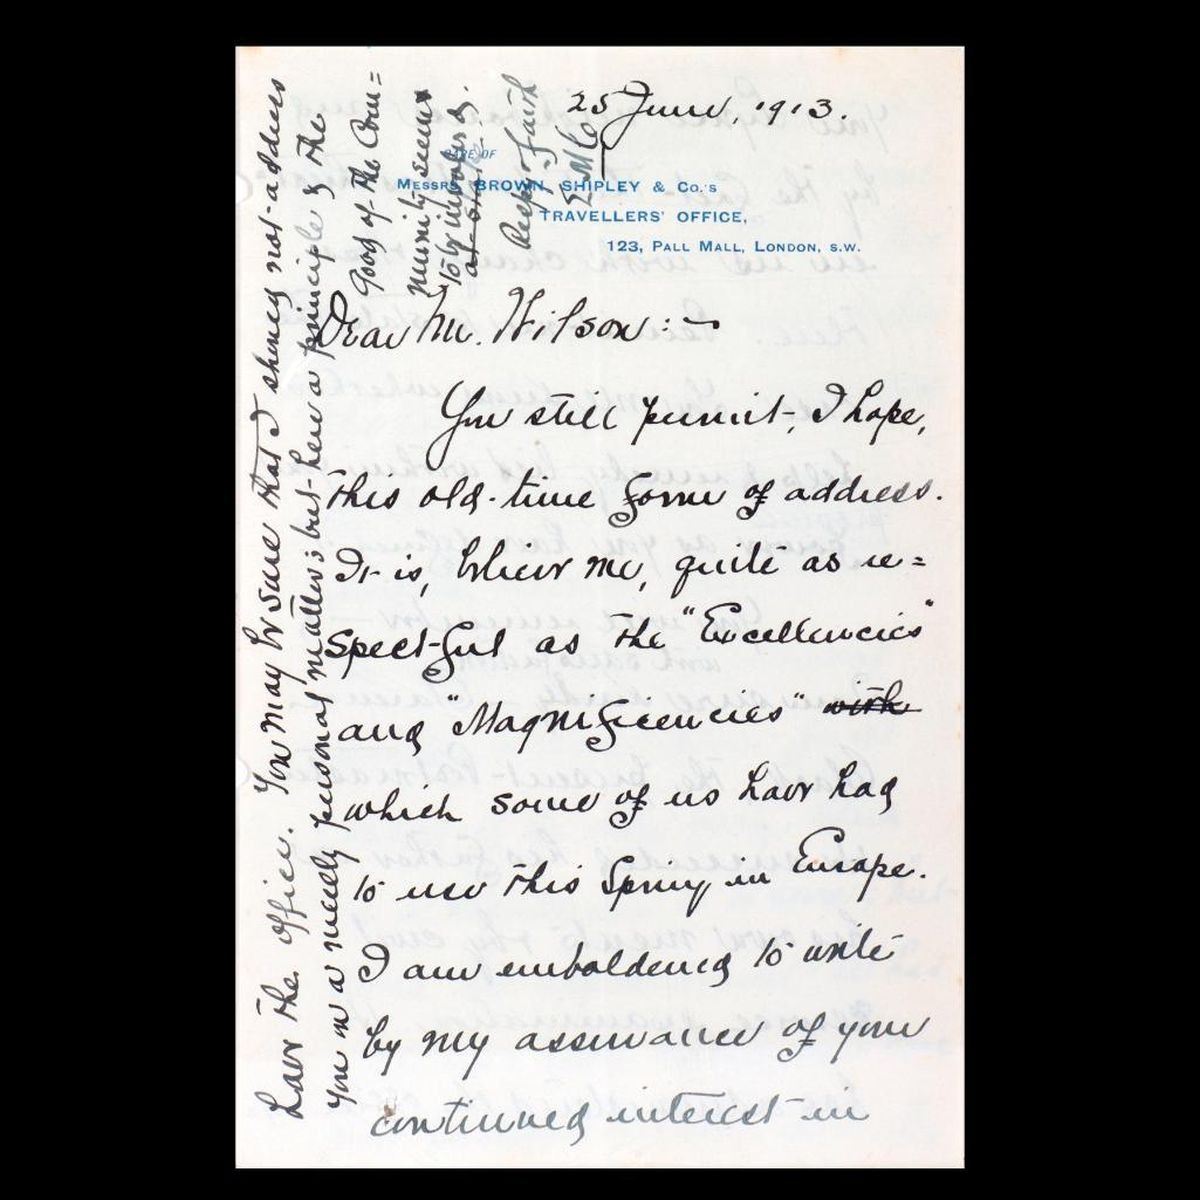 25 June, 1913.
CARE OF
MESSRS BROWN, SHIPLEY & Co.'s
TRAVELLERS' OFFICE,
123, PALL MALL, LONDON, S.W.
Dear Mr. Wilson:—
You still permit, I hope,
this old-time form of address.
It is, believe me, quite as re=
spectful as the "Excellencies"
and "Magnificencies" with
which some of us have had
to use this Spring in Europe.
I am emboldened to write
by my assurance of your
continued interest in
have the office. You may be sure that I should not address
you in a merely personal matter; but here a principle & the
good of the Com=
munity seems
to be involved.
at stake
Respy. & faith